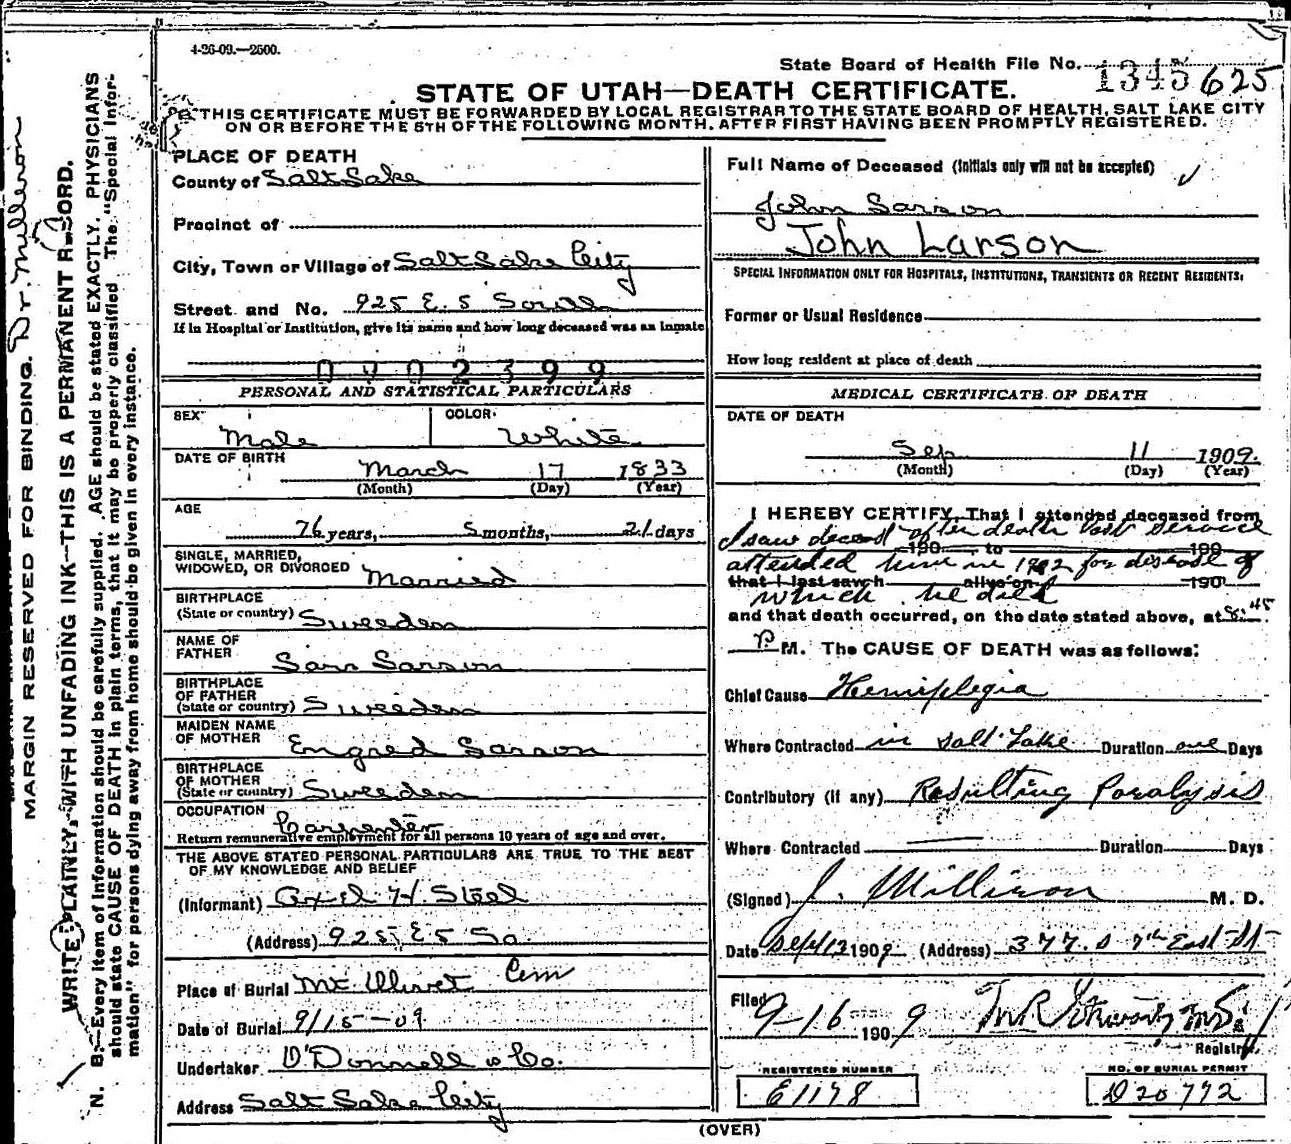 4-26-09.—2500.
State Board of Health File No. 1345 625
STATE OF UTAH—DEATH CERTIFICATE.
THIS CERTIFICATE MUST BE FORWARDED BY LOCAL REGISTRAR TO THE STATE BOARD OF HEALTH, SALT LAKE CITY
ON OR BEFORE THE 5TH OF THE FOLLOWING MONTH, AFTER FIRST HAVING BEEN PROMPTLY REGISTERED.
PLACE OF DEATH
County of Salt Lake
Precinct of
City, Town or Village of Salt Lake City
Street and No. 925 E. 5 South
If in Hospital or Institution, give its name and how long deceased was an inmate
0402399
PERSONAL AND STATISTICAL PARTICULARS
SEX
COLOR
Male White
DATE OF BIRTH
March 17 1833
(Month) (Day) (Year)
AGE
76 years, 5 months, 21 days
SINGLE, MARRIED,
WIDOWED, OR DIVORCED Married
BIRTHPLACE
(State or country) Sweeden
NAME OF
FATHER
Larr Larson
BIRTHPLACE
OF FATHER
(State or country) Sweeden
MAIDEN NAME
OF MOTHER Engred Larson
BIRTHPLACE
OF MOTHER
(State or country) Sweeden
OCCUPATION
Carpenter
Return remunerative employment for all persons 10 years of age and over.
THE ABOVE STATED PERSONAL PARTICULARS ARE TRUE TO THE BEST
OF MY KNOWLEDGE AND BELIEF
(Informant) Axel H. Steel
(Address) 925 E 5 So.
Place of Burial Mt Olivet Cem
Date of Burial 9/15-09
Undertaker O'Donnell & Co.
Address Salt Lake City
Full Name of Deceased (Initials only will not be accepted)
John Larson
John Larson
SPECIAL INFORMATION ONLY FOR HOSPITALS, INSTITUTIONS, TRANSIENTS OR RECENT RESIDENTS.
Former or Usual Residence
How long resident at place of death
MEDICAL CERTIFICATE OF DEATH
DATE OF DEATH
Sep 11 1909.
(Month) (Day) (Year)
I HEREBY CERTIFY, That I attended deceased from
I saw deceasd after death last service
190 to 190
attended him in 1902 for disease of
that I last saw h alive on 190
which he died
and that death occurred, on the date stated above, at 8:45
P. M. The CAUSE OF DEATH was as follows:
Chief Cause Hemiplegia
Where Contracted in Salt Lake Duration one Days
Contributory (if any) Resulting Paralysis
Where Contracted Duration Days
(Signed) J. Milliron M. D.
Date Sept 12 1909 (Address) 377. S 7th East St
Filed
9-16 1909
Registrar
REGISTERED NUMBER
E1198
NO. OF BURIAL PERMIT
D20772
(OVER)
MARGIN RESERVED FOR BINDING. Dr. Milleron
WRITE PLAINLY, WITH UNFADING INK—THIS IS A PERMANENT RECORD.
N. B.—Every item of information should be carefully supplied. AGE should be stated EXACTLY. PHYSICIANS
should state CAUSE OF DEATH in plain terms, that it may be properly classified. The "Special Infor-
mation" for persons dying away from home should be given in every instance.